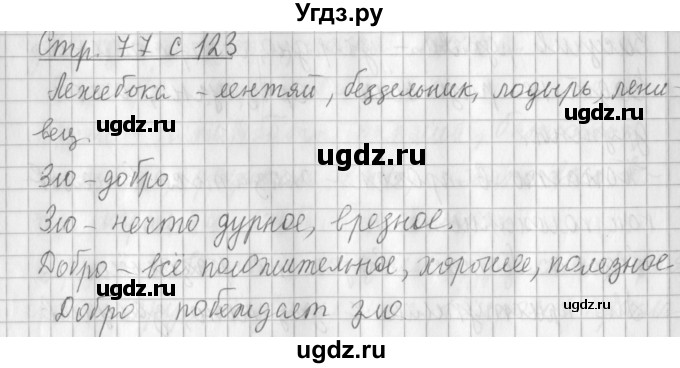 Угдз.ру
Стр. 77 с 123
Лежебока - лентяй, бездельник, лодырь, лени-
ugdz.ru ugdz.ru
вец.
ugdz.ru
Зло - добро
Зло - нечто дурное, вредное.
ugdz.ru ugdz.ru
Добро - всё положительное, хорошее, полезное
Добро побеждает зло
ugdz.ru ugdz.ru
ugdz.ru